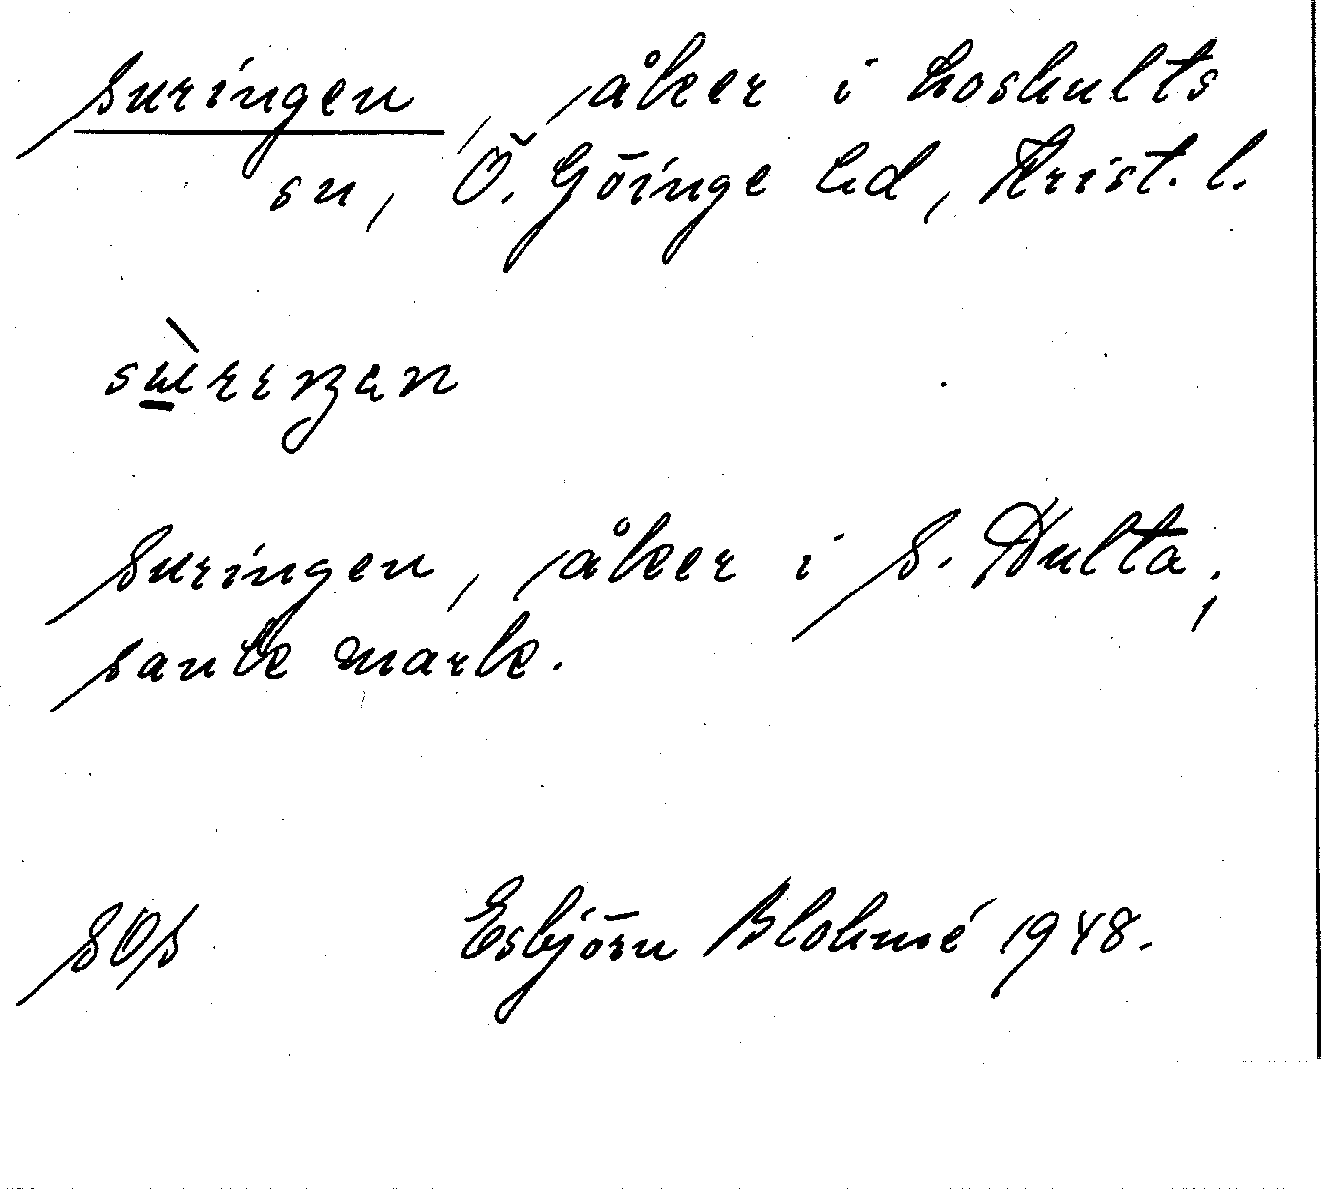 Suringen, åker i Loshults
sn, Ö. Göinge hd, Krist. l.
sù̱rıŋən
Suringen, åker i S. Hulta,
sank mark.
SOS Esbjörn Blohmé 1948.